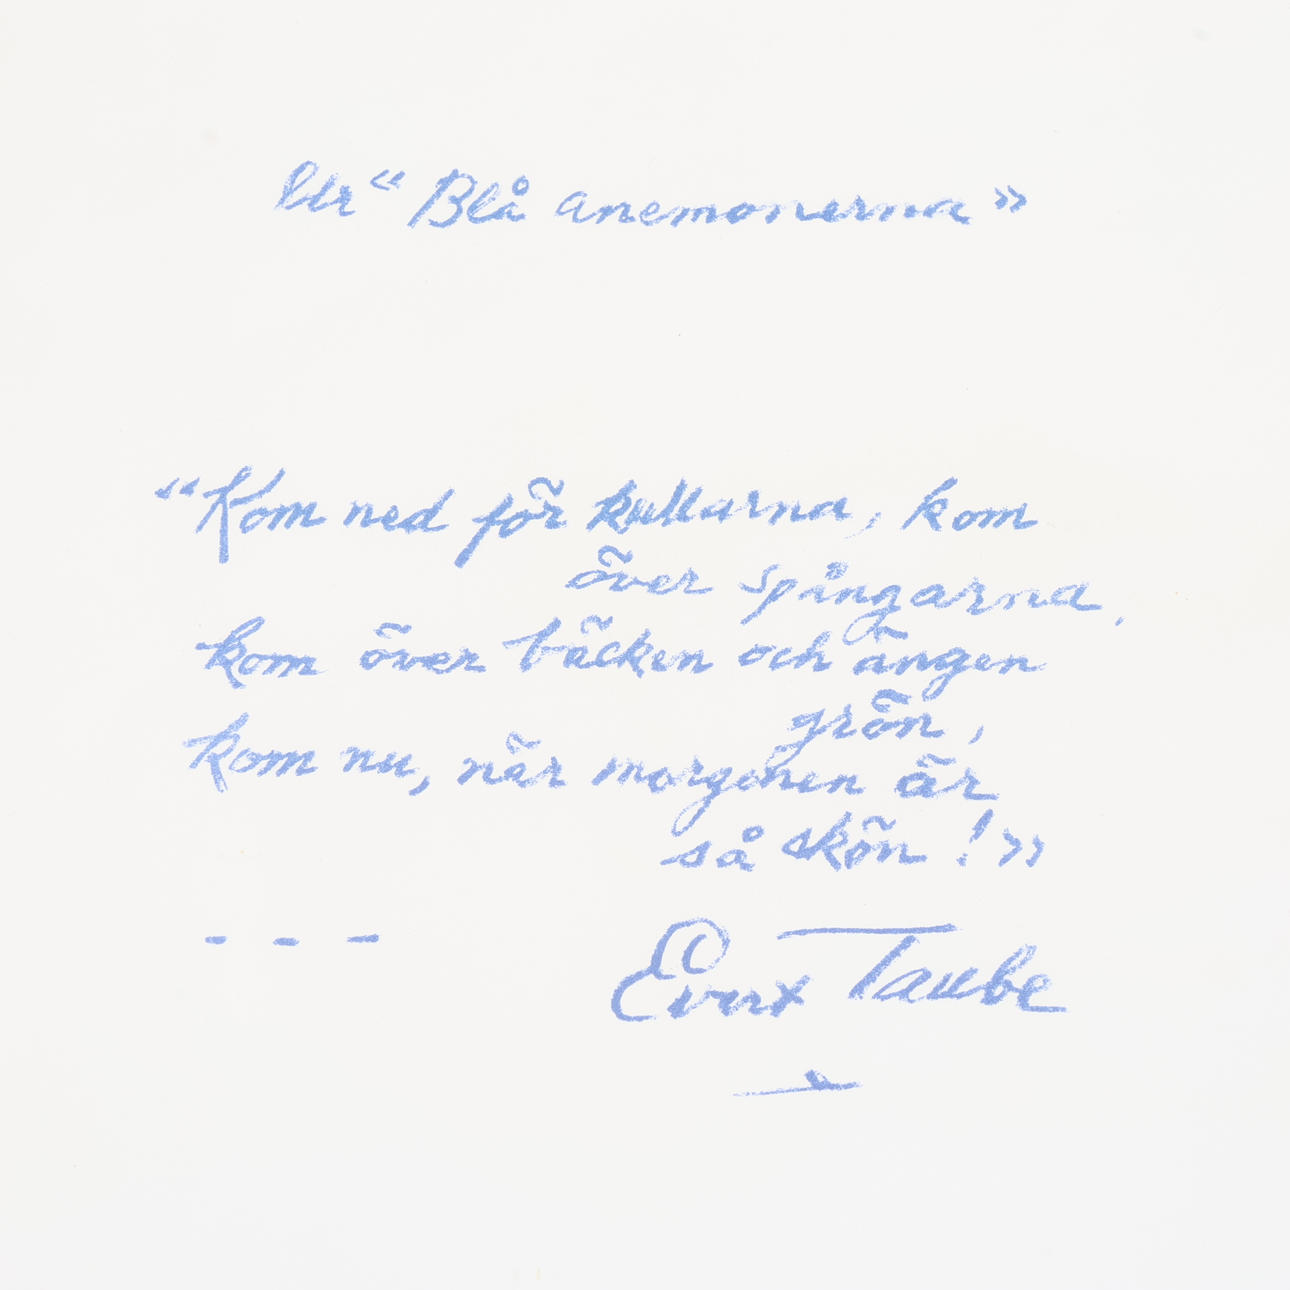 Ur “Blå anemonerna”
“Kom ned för kullarna, kom
över spångarna,
kom över bäcken och ängen
grön,
kom nu, när morgonen är
så skön!”
- - - Evert Taube